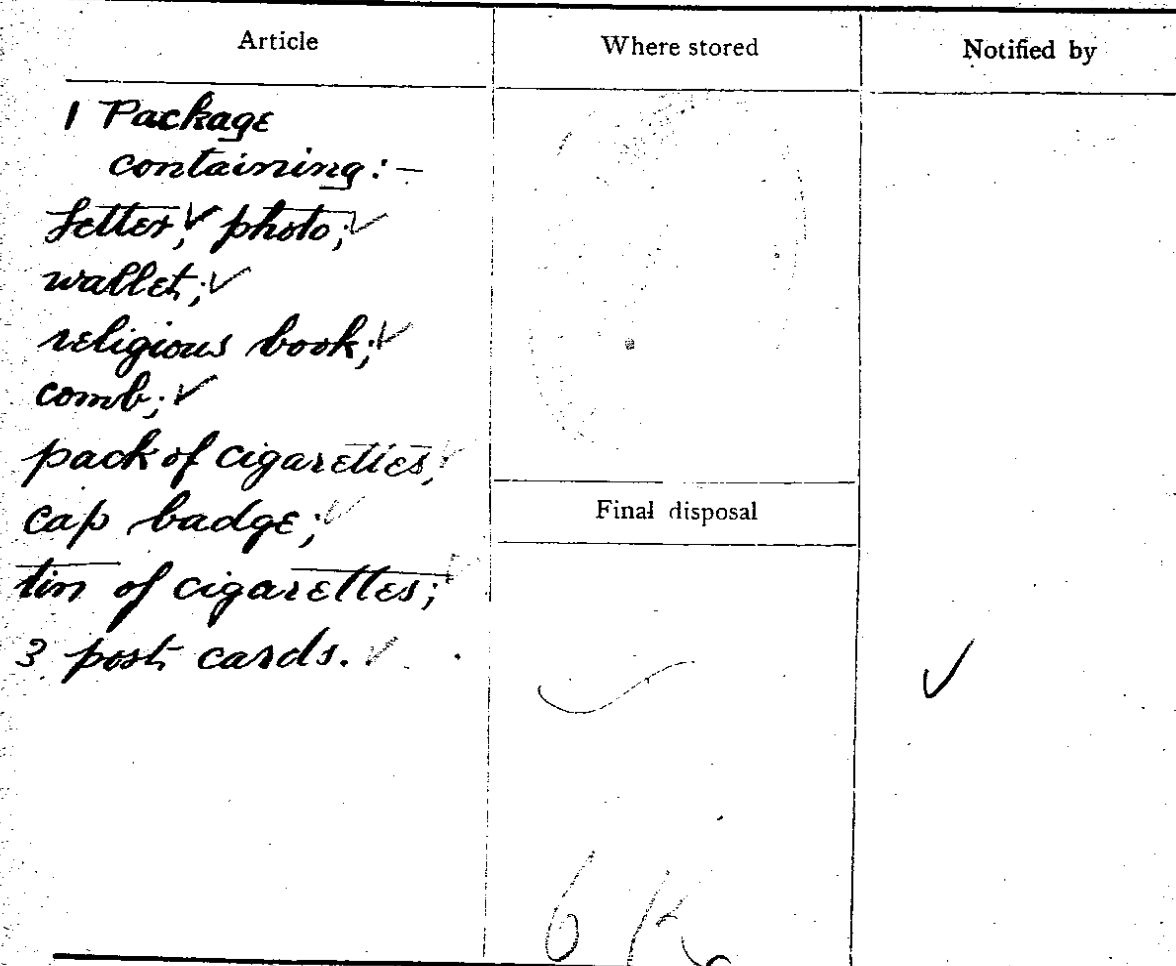 Article
Where stored
Notified by
1 Package
containing:—
Letter; photo;
wallet;
religious book;
comb;
pack of cigarettes,
cap badge;
tin of cigarettes;
3 post cards.
Final disposal